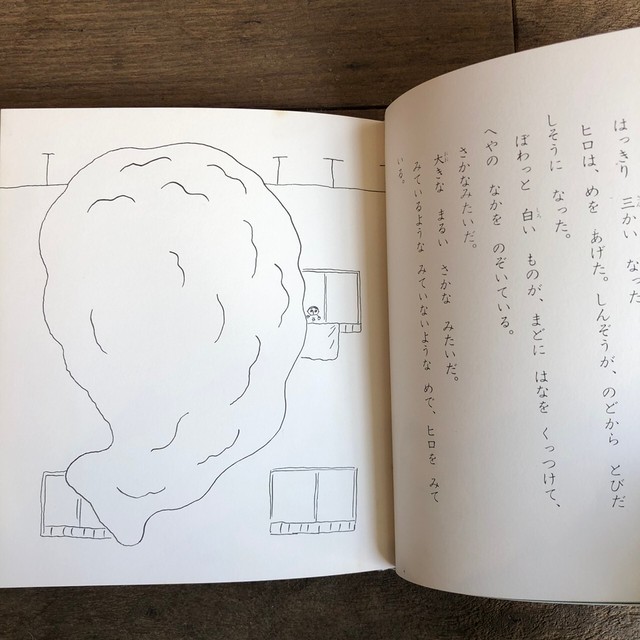 はっきり 三かい なった
ヒロは、めを あげた。しんぞうが、のどから とびだ
しそうに なった。
ぼわっと 白い ものが、まどに はなを くっつけて、
へやの なかを のぞいている。
さかなみたいだ。
大きな まるい さかな みたいだ。
みているような みていないような めで、ヒロを みて
いる。